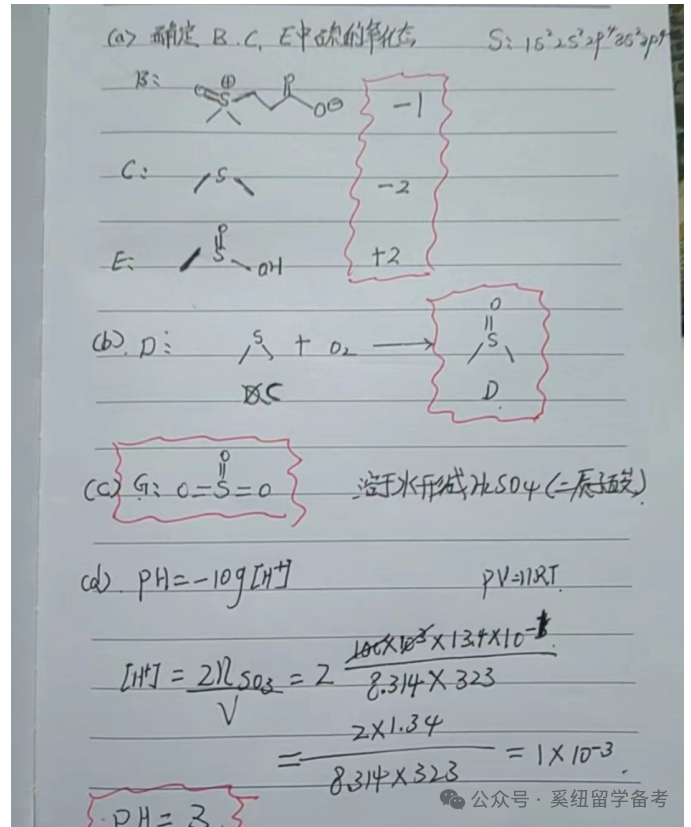 (a) 确定 B.C. E中硫的氧化态 S: 1s²2s²2p⁴3s²3p⁴
B: S ⊕ O⊖ -1
C: S -2
E: S OH +2
(b). D: S + O₂ → O=S
C D
(c) G: O=S=O O 溶于水形成H₂SO₄(二质子酸)
(d). PH=-log[H⁺] PV=nRT.
[H⁺] = 2n SO₃ / V = 2 100×10³×13.4×10⁻ / 8.314×323
= 2×1.34 / 8.314×323 = 1×10⁻³.
PH=3
公众号·奚纽留学备考